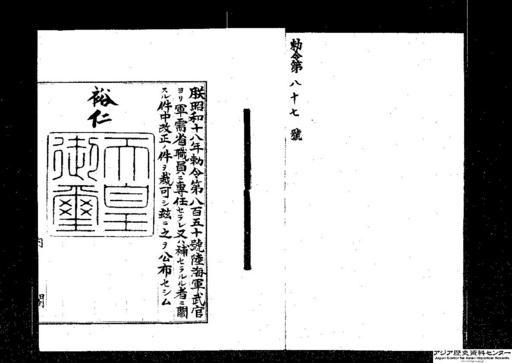 勅令第八十七號
朕昭和十八年勅令第八百五十號陸海軍武官
ヨリ軍需省職員ニ專任セラレ又ハ補セラルル者ニ關
スル件中改正ノ件ヲ裁可シ玆ニ之ヲ公布セシム
裕仁
天皇
御璽
内
閣
アジア歴史資料センター
Japan Center for Asian Historical Records